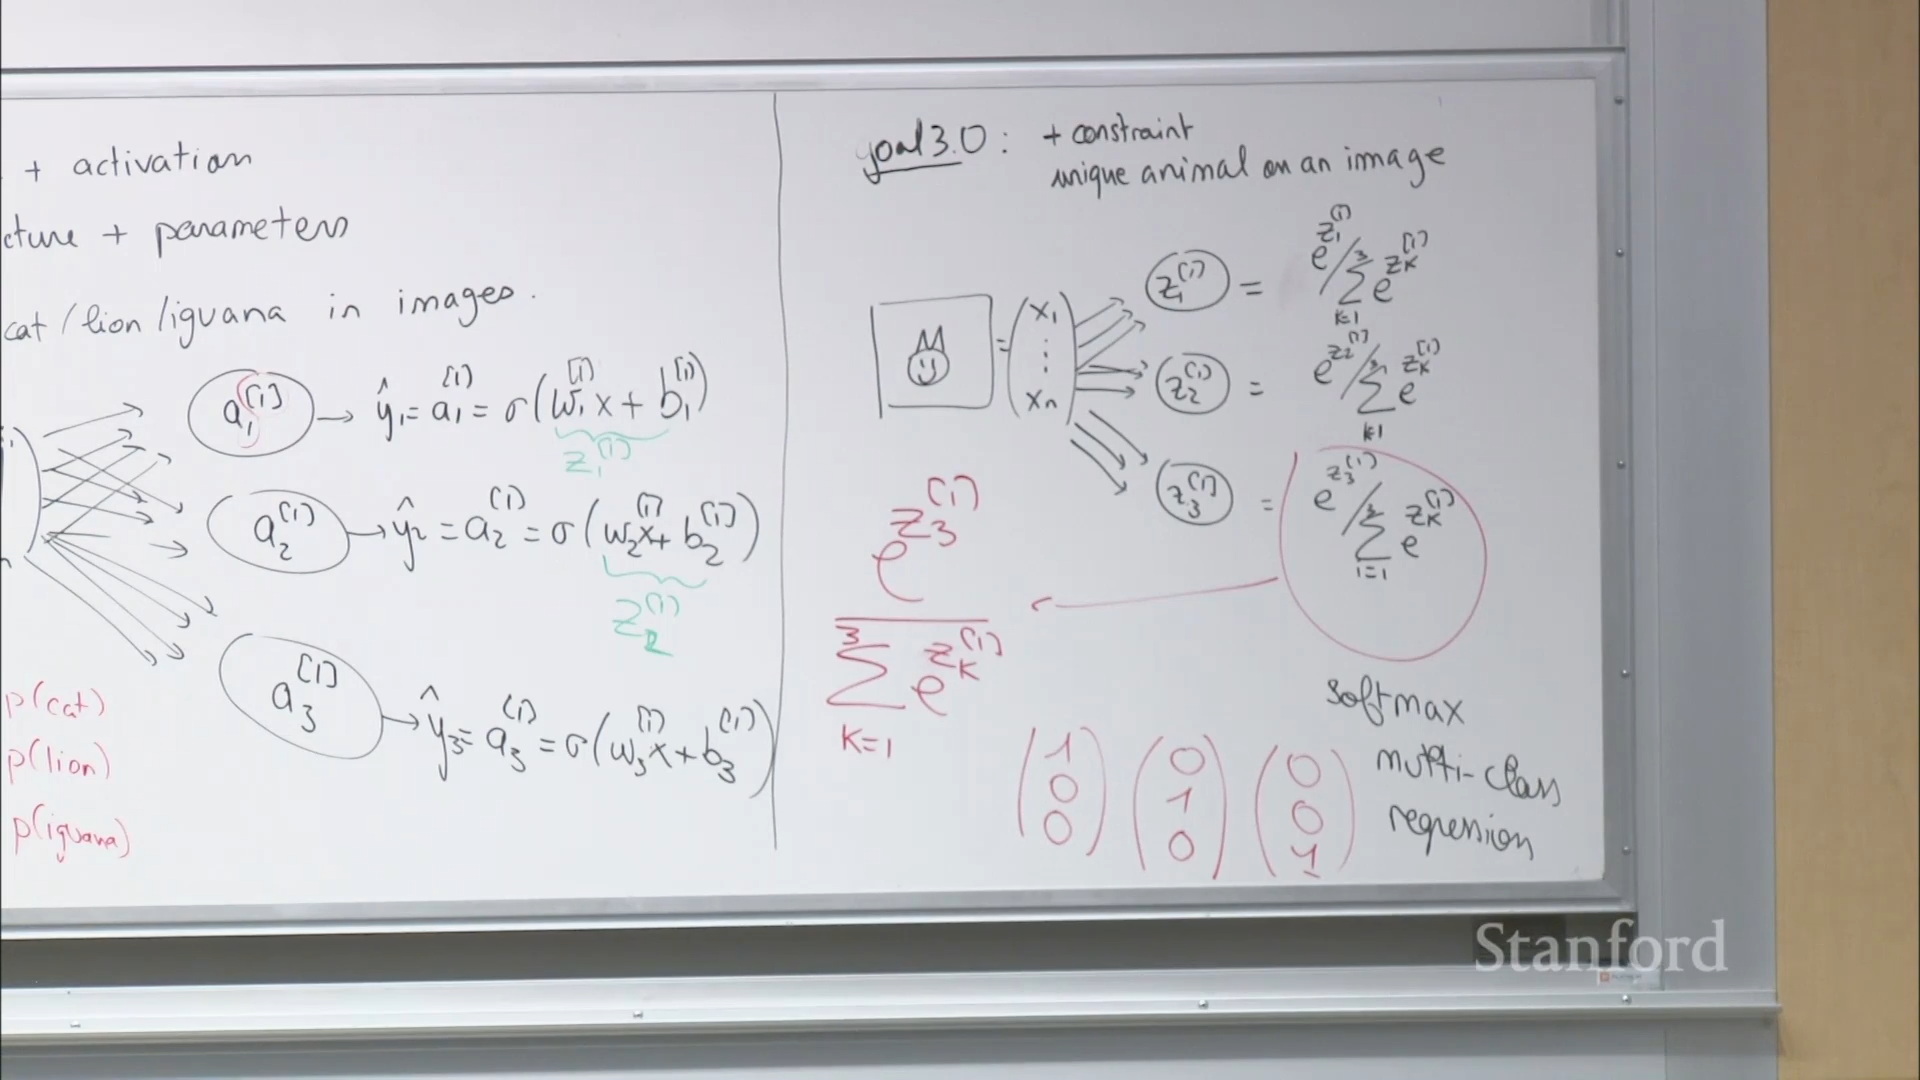 + activation
cture + parameters
cat / lion / iguana in images.
a₁^[1] → ŷ₁ = a₁^[1] = σ(w₁^[1] x + b₁^[1])
z₁^[1]
a₂^[1] → ŷ₂ = a₂^[1] = σ(w₂^[1] x + b₂^[1])
z₂^[1]
a₃^[1] → ŷ₃ = a₃^[1] = σ(w₃^[1] x + b₃^[1])
p(cat)
p(lion)
p(iguana)
goal 3.0 : + constraint
unique animal on an image
= (x₁ ⋮ xₙ)
z₁^[1] = e^{z₁^[1]} / Σ_{k=1}^{3} e^{z_k^[1]}
z₂^[1] = e^{z₂^[1]} / Σ_{k=1}^{3} e^{z_k^[1]}
z₃^[1] = e^{z₃^[1]} / Σ_{i=1}^{3} e^{z_k^[1]}
e^{z₃^[1]}
Σ_{k=1}^{3} e^{z_k^[1]}
(1 0 0) (0 1 0) (0 0 1)
softmax
multi-class
regression
Stanford